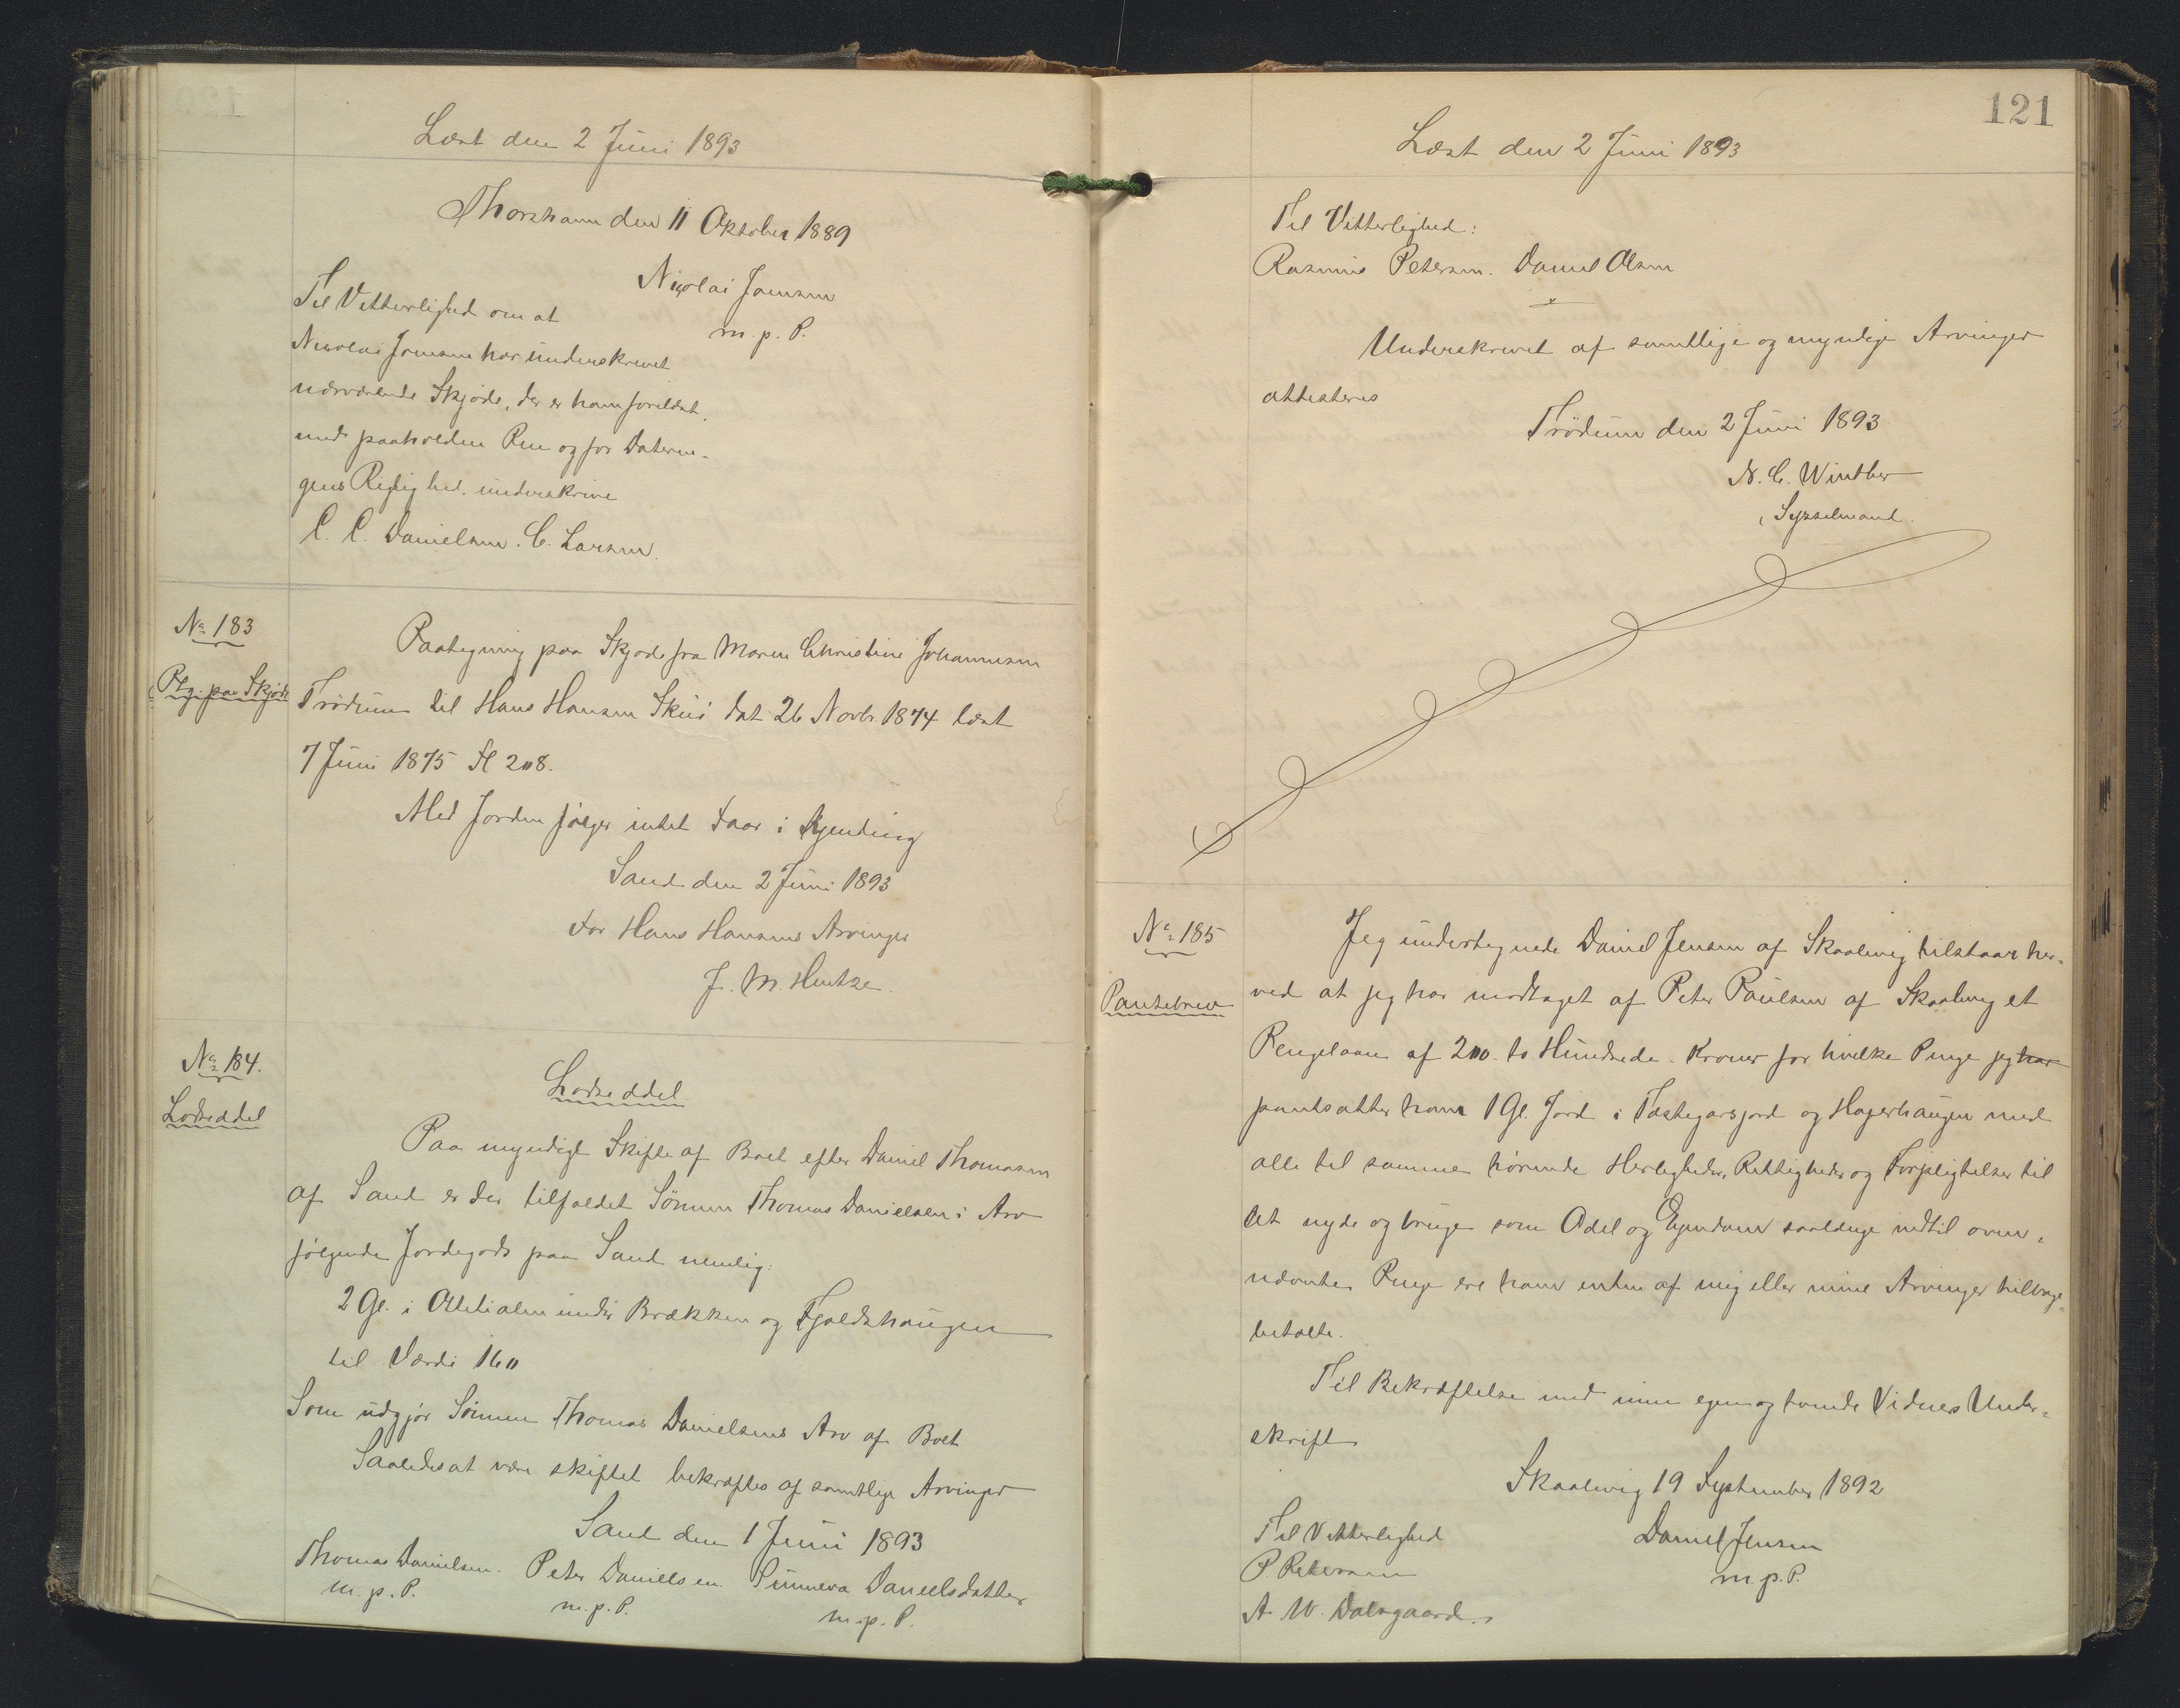 Læst den 2 Juni 1893
Thorshavn den 11 Oktober 1889
Nicolai Joensen
m. p. P.
Til Vitterlighed om at
Nicolai Joensen har underskrevet
nærværende Skjøde, der er ham forelæst,
med paaholden Pen og for Daterin-
gens Rigtighed, underskrive
C. C. Danielsen. C. Larsen.
No 183
Ptg. paa Skjøde
Paategning paa Skjøde fra Maren Christine Johannesen
Trödum til Hans Hansen Skuö dat 26 Novbr. 1874 læst
7 Juni 1875 Fl 208.
Med Jorden følger intet Faar i Kjending
Sand den 2 Juni 1893
For Hans Hansens Arvinger
J. M. Hentze.
No 184.
Lodseddel
Lodseddel
Paa myndigt Skifte af Boet efter Daniel Thomasen
af Sand er der tilfaldet Sönnen Thomas Danielsen i Arv
følgende Jordegods paa Sand nemlig:
2 Gl. i under Brækken og Fjaldshaugen
til Værdi 160
Som udgjør Sönnen Thomas Danielsens Arv af Boet
Saaledes at være skiftet bekræftes af samtlige Arvinger
Sand den 1 Juni 1893
Thomas Danielsen. Peter Danielsen. Sunneva Danielsdatter
m. p. P. m. p. P. m. p. P.
121
Læst den 2 Juni 1893
Til Vitterlighed:
Rasmus Petersen. Daniel Olsen
Underskrevet af samtlige og myndige Arvinger
attesteres
Trödum den 2 Juni 1893
N. C. Winther
Sysselmand.
No 185
Pantebrev
Jeg undertegnede Daniel Jensen af Skaalevig tilstaar her-
ved at jeg har modtaget af Peter Paulsen af Skaalevig et
Pengelaan af 200 to Hundrede Kroner for hvilke Penge jeg har
pantsætter ham 1 Gl. Jord i Tastegarsjord og Hagerhaugen med
alle til samme hørende Herligheder, Rettigheder og Forpligtelser til
at nyde og bruge som Odel og Ejendom saalænge indtil oven-
nævnte Penge ere ham enten af mig eller mine Arvinger tilbage-
betalte.
Til Bekræftelse med min egen og tvende Vidners Under-
skrift
Skaalevig 19 September 1892
Til Vitterlighed
Daniel Jensen
P. Petersen
m. p. P.
A. W. Dalsgaard.